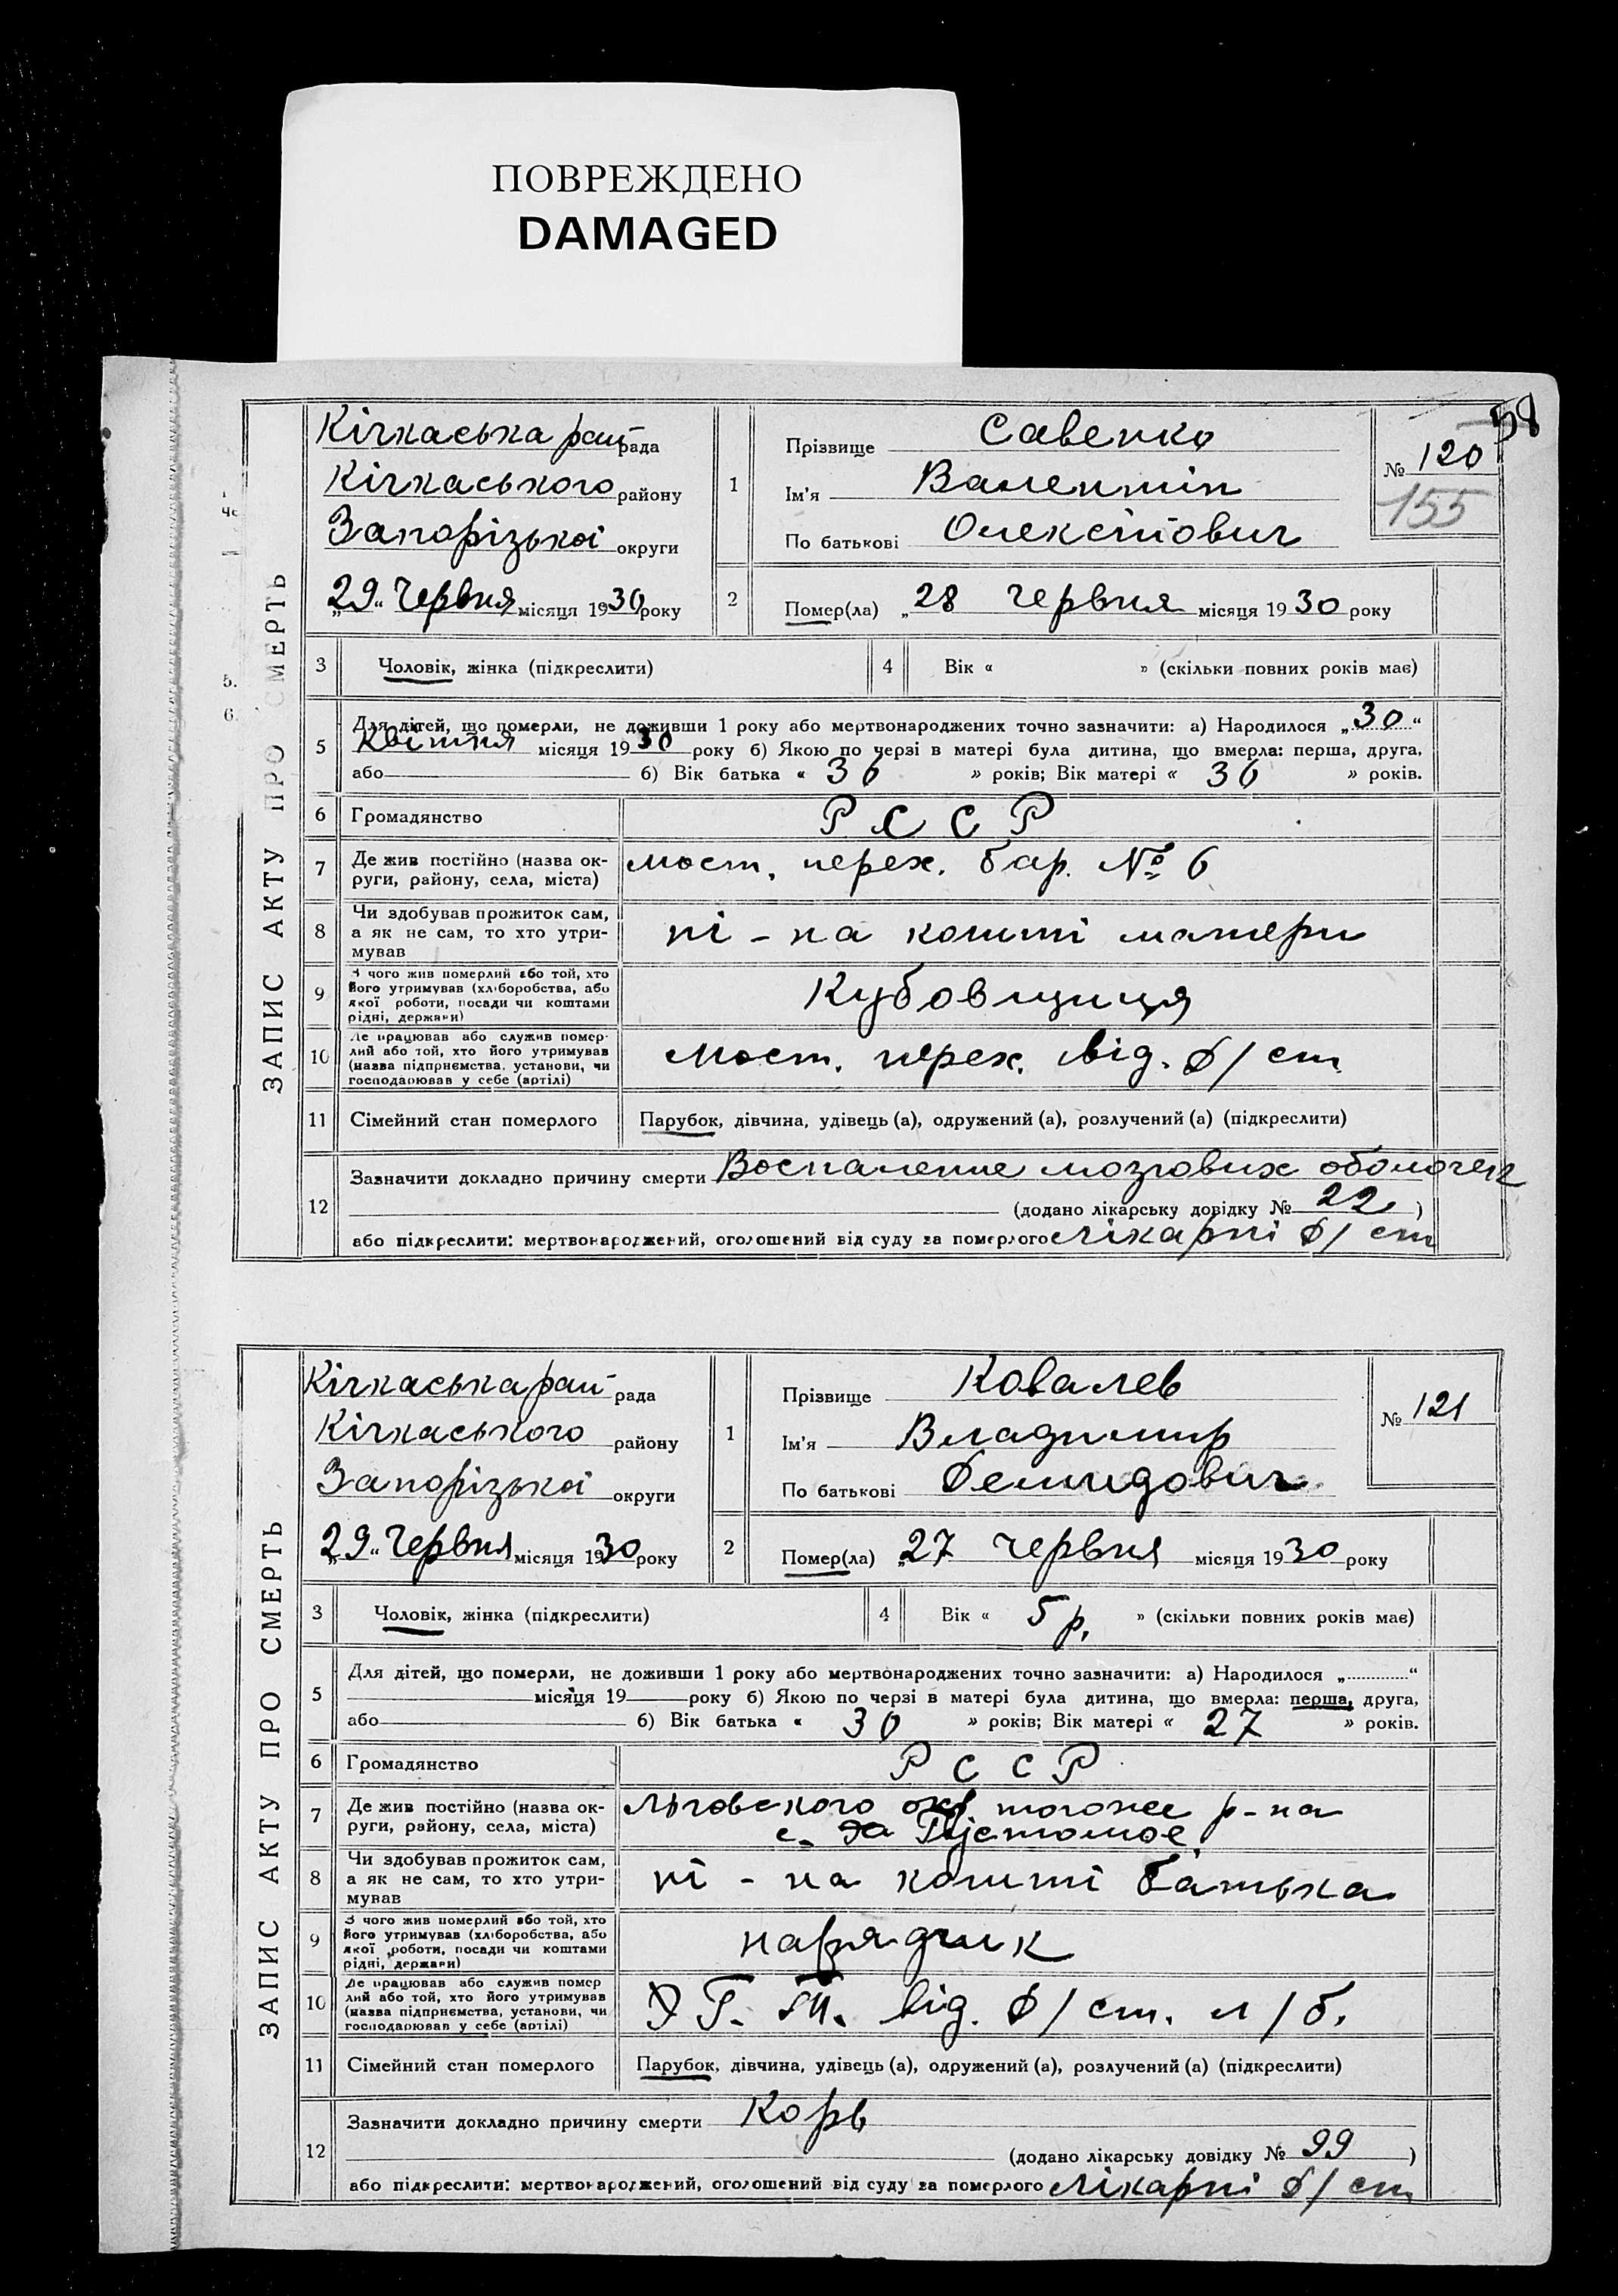 ПОВРЕЖДЕНО
DAMAGED
58
ЗАПИС АКТУ ПРО СМЕРТЬ
Кічкаська рай рада
Кічкаського району
Запорізької округи
„29“ Червня місяця 1930 року
1
Прізвище Савенко
Ім'я Валентін
По батькові
№ 120
155
2 Помер(ла) „28 червня місяця 1930 року
3 Чоловік, жінка (підкреслити) 4 Вік « » (скільки повних років має)
5 Для дітей, що померли, не доживши 1 року або мертвонароджених точно зазначити: а) Народилося „30“
квітня місяця 1930 року б) Якою по черзі в матері була дитина, що вмерла: перша, друга,
або б) Вік батька « 36 » років; Вік матері « 36 » років.
6 Громадянство Р С С Р
7 Де жив постійно (назва ок-
руги, району, села, міста) мост. перех. бар. № 6
8 Чи здобував прожиток сам,
а як не сам, то хто утри-
мував ні - на кошти матери
9 З чого жив померлий або той, хто
його утримував (хліборобства, або
якої роботи, посади чи коштами
рідні, держави) Кубовщиця
10 Де працював або служив помер-
лий або той, хто його утримував
(назва підприємства, установи, чи
господарював у себе (артілі) Мост. перех. від. Ф/ст
11 Сімейний стан померлого Парубок, дівчина, удівець (а), одружений (а), розлучений (а) (підкреслити)
12 Зазначити докладно причину смерти Воспаление мозгових оболочек
(додано лікарську довідку № 22)
або підкреслити: мертвонароджений, оголошений від суду за померлого Лікарні Ф/ст
ЗАПИС АКТУ ПРО СМЕРТЬ
Кічкаська рай рада
Кічкаського району
Запорізької округи
„29“ Червня місяця 1930 року
1
Прізвище Ковалев
Ім'я Владимир
По батькові Демидович
№ 121
2 Помер(ла) „27 червня місяця 1930 року
3 Чоловік, жінка (підкреслити) 4 Вік « 5 р. » (скільки повних років має)
5 Для дітей, що померли, не доживши 1 року або мертвонароджених точно зазначити: а) Народилося „ “
місяця 19 року б) Якою по черзі в матері була дитина, що вмерла: перша, друга,
або б) Вік батька « 30 » років; Вік матері « 27 » років.
6 Громадянство Р С С Р
7 Де жив постійно (назва ок-
руги, району, села, міста) Льговского окр. тогоже р-на
с.
8 Чи здобував прожиток сам,
а як не сам, то хто утри-
мував ні - на кошти батька
9 З чого жив померлий або той, хто
його утримував (хліборобства, або
якої роботи, посади чи коштами
рідні, держави) нарядчик
10 Де працював або служив помер
лий або той, хто його утримував
(назва підприємства, установи, чи
господарював у себе (артілі) від. Ф/ст. л/б.
11 Сімейний стан померлого Парубок, дівчина, удівець (а), одружений (а), розлучений (а) (підкреслити)
12 Зазначити докладно причину смерти Корь
(додано лікарську довідку № 99)
або підкреслити: мертвонароджений, оголошений від суду за померлого Лікарні Ф/ст